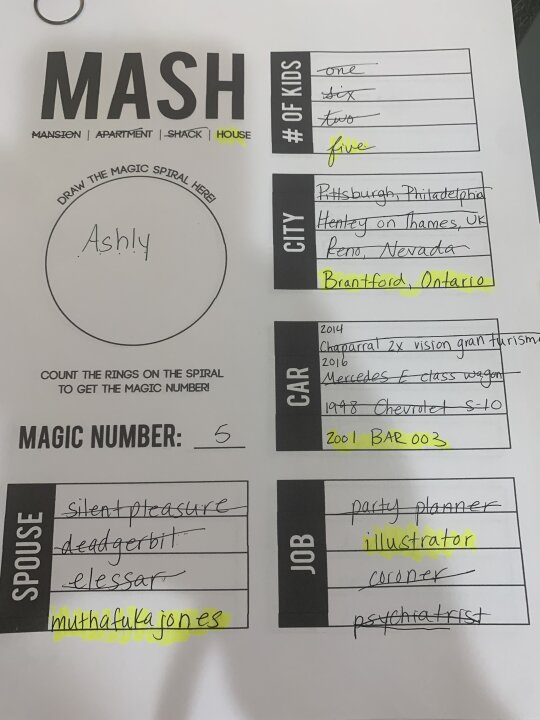 MASH
MANSION | APARTMENT | SHACK | HOUSE
DRAW THE MAGIC SPIRAL HERE!
Ashly
COUNT THE RINGS ON THE SPIRAL
TO GET THE MAGIC NUMBER!
MAGIC NUMBER: 5
# OF KIDS
one
six
two
five
CITY
Pittsburgh, Philadelphia
Henley on Thames, UK
Reno, Nevada
Brantford, Ontario
CAR
2014
Chaparral 2x vision gran turismo
2016
Mercedes E class wagon
1998 Chevrolet S-10
2001 BAR 003
SPOUSE
silent pleasure
deadgerbil
elessar
muthafukajones
JOB
party planner
illustrator
coroner
psychiatrist